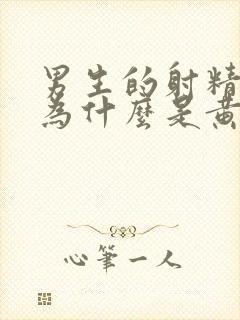 男生的射精
為什麼是黃
心筆一人